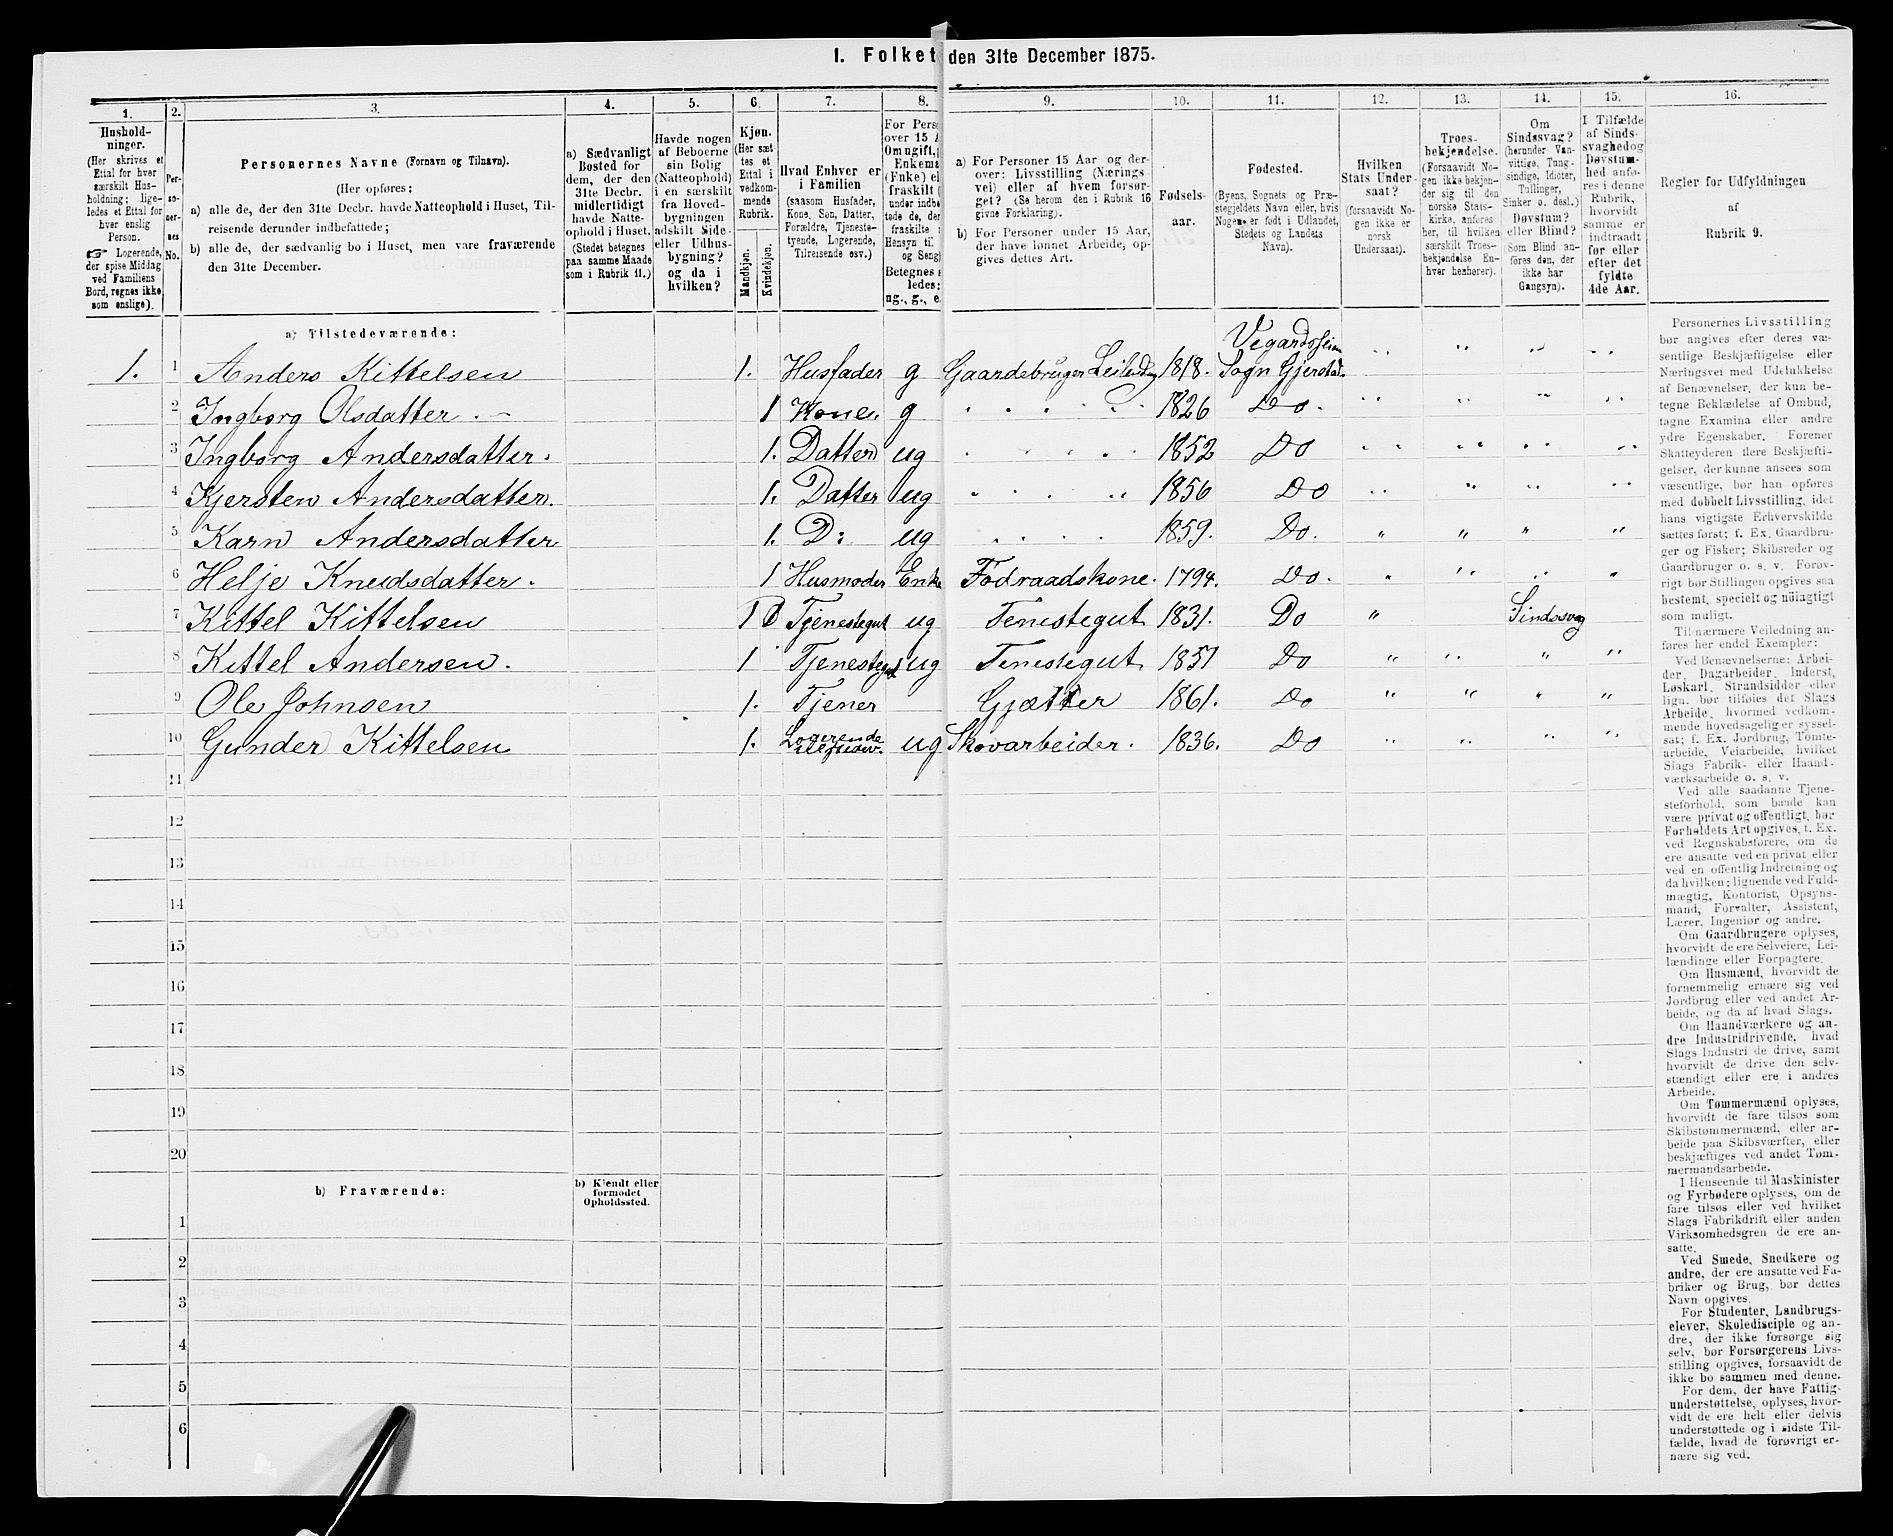 1. Folket den 31te December 1875.
1. 2. 3. 4. 5. 6. 7. 8. 9. 10. 11. 12. 13. 14. 15. 16.
Hushold-
ninger.
(Her skrives et
Ettal for hver
særskilt Hus-
holdning; lige-
ledes et Ettal for
hver enslig
Person.
☞ Logerende,
der spise Middag
ved Familiens
Bord, regnes ikke
som enslige).
Per-
so-
ner-
nes
No.
Personernes Navne (Fornavn og Tilnavn).
(Her opføres:
a) alle de, der den 31te Decbr. havde Natteophold i Huset, Til-
reisende derunder indbefattede;
b) alle de, der sædvanlig bo i Huset, men vare fraværende
den 31te December.
a) Sædvanligt
Bosted for
dem, der den
31te Decbr.
midlertidigt
havde Natte-
ophold i Huset.
(Stedet betegnes
paa samme Maade
som i Rubrik 11.)
Havde nogen
af Beboerne
sin Bolig
(Natteophold)
i en særskilt
fra Hoved-
bygningen
adskilt Side-
eller Udhus-
bygning?
og da i
hvilken?
Kjøn.
(Her sæt
tes et
Ettal i
vedkom-
mende
Rubrik.
Mandkjøn.
Kvindekjøn.
Hvad Enhver er
i Familien
(saasom Husfader,
Kone, Søn, Datter,
Forældre, Tjeneste-
tyende, Logerende,
Tilreisende osv.)
For Pers
over 15 A
Om ugift,
Enkema
(Enke) el
fraskilt
under indbe
tede de, der
fraskilte
Hensyn til
og Seng)
Betegnes s
ledes:
ug., g., e.
a) For Personer 15 Aar og der-
over: Livsstilling (Nærings
vei) eller af hvem forsør-
get? (Se herom den i Rubrik 16
givne Forklaring).
b) For Personer under 15 Aar,
der have lønnet Arbeide, op-
gives dettes Art.
Fødsels-
aar.
Fødested.
(Byens, Sognets og Præ-
stegjeldets Navn eller, hvis
Nogen er født i Udlandet,
Stedets og Landets
Navn).
Hvilken
Stats Under-
saat?
(forsaavidt No-
gen ikke er
norsk
Undersaat).
Troes-
bekjendelse.
(Forsaavidt No-
gen ikke bekjen-
der sig til den
norske Stats-
kirke, anføres
her, til hvilken
særskilt Troes-
bekjendelse En-
hver henhører).
Om
Sindssvag?
(herunder Van-
vittige, Tung-
sindige, Idioter,
Tullinger,
Sinker o. desl.)
Døvstum?
eller Blind?
(Som Blind an-
føres den, der
ikke har
Gangsyn).
I Tilfælde
af Sinds-
svaghed og
Døvstum-
hed anfø-
res i denne
Rubrik,
hvorvidt
samme er
indtraadt
før eller
efter det
fyldte
4de Aar.
Regler for Udfyldningen
af
Rubrik 9.
a) Tilstedeværende:
1. 1 Anders Kittelsen 1. Husfader g Gaardebruger 1818. Vegardsheim Sogn Gjerstad
2 Ingborg Olsdatter 1 Kone. g 1826 Do.
3 Ingborg Andersdatter. 1. Datter ug 1852 Do
4 Kjersten Andersdatter. 1. Datter ug 1856 Do
5 Karn Andersdatter 1. D: ug 1859. Do.
6 Helje Knudsdatter. 1 Husmoder Enke Födraadskone. 1794. Do.
7 Kittel Kittelsen 1 Tjenestegut ug Tenestegut 1831. Do Sindssvag
8 Kittel Andersen. 1 Tjenestegut ug Tenestegut 1851 Do
9 Ole Johnsen 1. Tjener Gjætter 1861. Do
10 Gunder Kittelsen 1. Logerende ug Skovarbeider. 1836. Do
11
12
13
14
15
16
17
18
19
20
b) Fraværende:
b) Kjendt eller
formodet
Opholdssted.
1
2
3
4
5
6
Personernes Livsstilling
bør angives efter deres væ-
sentlige Beskjæftigelse eller
Næringsvei med Udelukkelse
af Benævnelser, der kun be-
tegne Beklædelse af Ombud,
tagne Examina eller andre
ydre Egenskaber. Forener
Skatteyderen flere Beskjæfti-
gelser, der kunne ansees som
væsentlige, bør han opføres
med dobbelt Livsstilling, idet
hans vigtigste Erhvervskilde
sættes først; f. Ex. Gaardbru-
ger og Fisker; Skibsreder og
Gaardbruger o. s. v. Forøv-
rigt bør Stillingen opgives saa
bestemt, specielt og nøiagtigt
som muligt.
Til nærmere Veiledning an-
føres her endel Exempler:
Ved Benævnelserne: Arbei-
der, Dagarbeider, Inderst,
Løskarl, Strandsidder eller
lign. bør tilføies det Slags
Arbeide, hvormed vedkom-
mende hovedsagelig er syssel-
sat; f. Ex. Jordbrug, Tømte-
arbeide, Veiarbeide, hvilket
Slags Fabrik- eller Haand-
værksarbeide o. s. v.
Ved alle saadanne Tjene-
steforhold, som baade kan
være privat og offentligt, bør
Forholdets Art opgives, t. Ex.
ved Regnskabsførere, om de
ere ansatte ved en privat eller
ved en offentlig Indretning og
da hvilken; lignende ved Fuld-
mægtig, Kontorist, Opsyns-
mand, Forvalter, Assistent,
Lærer, Ingeniør og andre.
Om Gaardbrugere oplyses,
hvorvidt de ere Selveiere, Lei-
lændinge eller Forpagtere.
Om Husmænd, hvorvidt de
fornemmelig ernære sig ved
Jordbrug eller ved andet Ar-
beide, og da af hvad Slags.
Om Haandværkere og an-
dre Industridrivende, hvad
Slags Industri de drive, samt
hvorvidt de drive den selv-
stændigt eller ere i andres
Arbeide.
Om Tømmermænd oplyses,
hvorvidt de fare tilsøs som
Skibstømmermænd, eller ar-
beide paa Skibsværfter, eller
beskjæftiges ved andet Tøm-
mermandsarbeide.
I Henseende til Maskinister
og Fyrbødere oplyses, om de
fare tilsøs eller ved hvilket
Slags Fabrikdrift eller anden
Virksomhedsgren de ere an-
satte.
Ved Smede, Snedkere og
andre, der ere ansatte ved Fa-
briker og Brug, bør dettes
Navn opgives.
For Studenter, Landbrugs-
elever, Skoledisciple og an-
dre, der ikke forsørge sig
selv, bør Forsørgerens Livs-
stilling opgives, forsaavidt de
ikke bo sammen med denne.
For dem, der have Fattig-
understøttelse, oplyses, hvor-
vidt de ere helt eller delvis
understøttede og i sidste Til-
fælde, hvad de forøvrigt er-
nære sig ved.